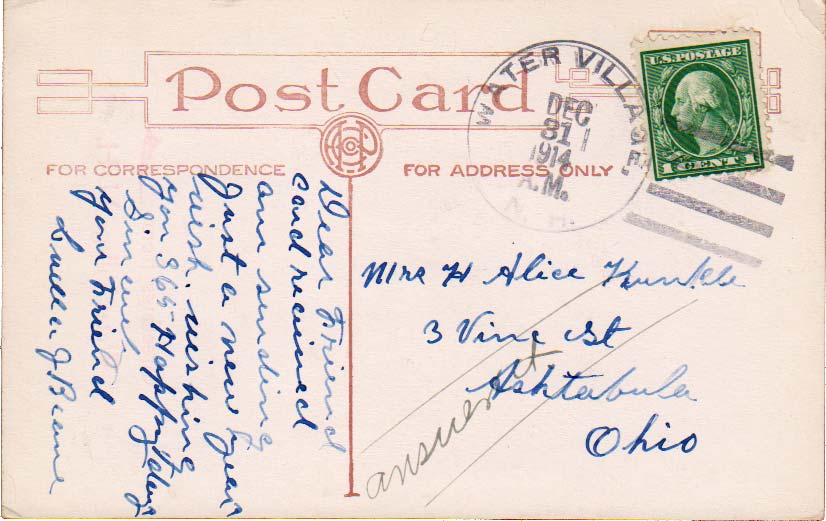 Post Card
FOR CORRESPONDENCE
FOR ADDRESS ONLY
WATER VILLAGE
DEC
31
1914
A.M.
N. H.
U.S. POSTAGE
1 CENT 1
Dear Friend
card recieved
am sending
Just a new year
wish. wishing
you 365 Happy days
Sincerel
your Friend
Luella J
Mrs H Alice
3 Vine St
Ashtabula
Ohio